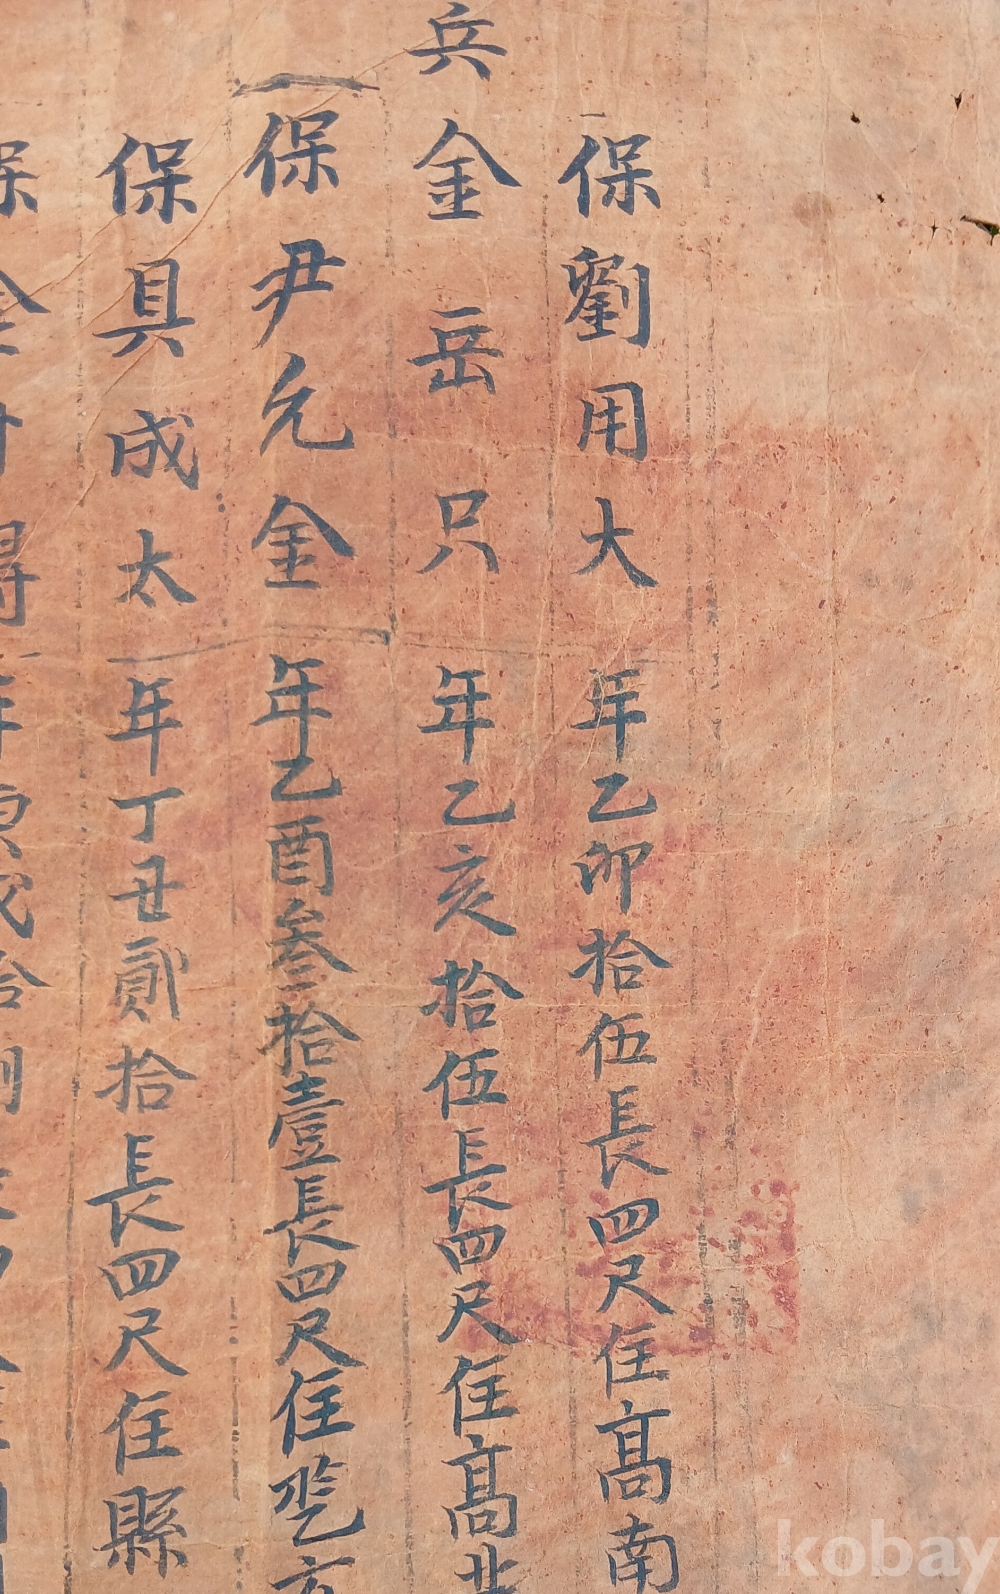 保劉用大年乙卯拾伍長四尺住髙南
兵金岳只年乙亥拾伍長四尺住髙北
保尹允金年乙酉叁拾壹長四尺住
保具成太年丁丑貳拾長四尺住縣
保金
kobay